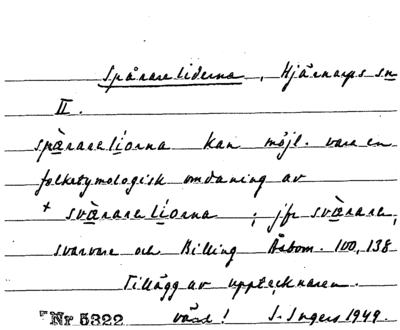 Spårareliderna, Hjärnarps sn
II.
spàrareliorna kan möjl. vara en
folketymologisk omdaning av
+ svàrareliorna; jfr svärare,
svarvare och Billing Åsbom. 100, 138
Tillägg av upptecknaren.
Nr 5322 vänd! S. Ingers 1949.